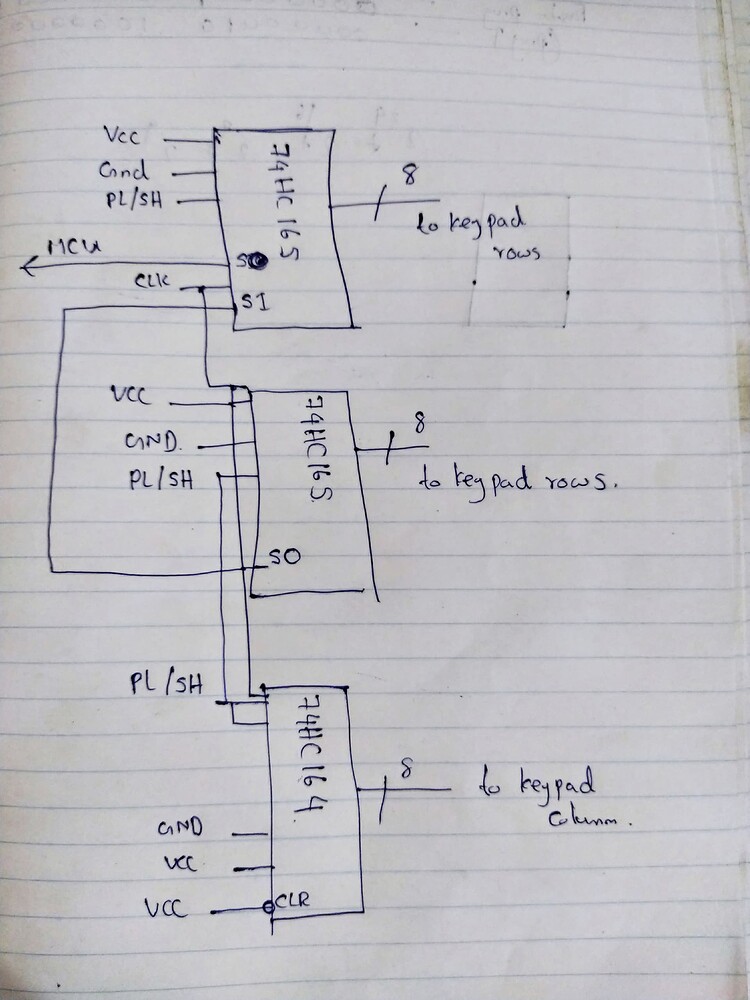 Vcc
Gnd
PL/SH
74HC165
8
to keypad
rows
MCU
SO
CLK
SI
VCC
GND.
PL/SH
74HC165
8
to keypad rows.
SO
PL/SH
74HC164
8
to keypad
Column.
GND
VCC
VCC
CLR